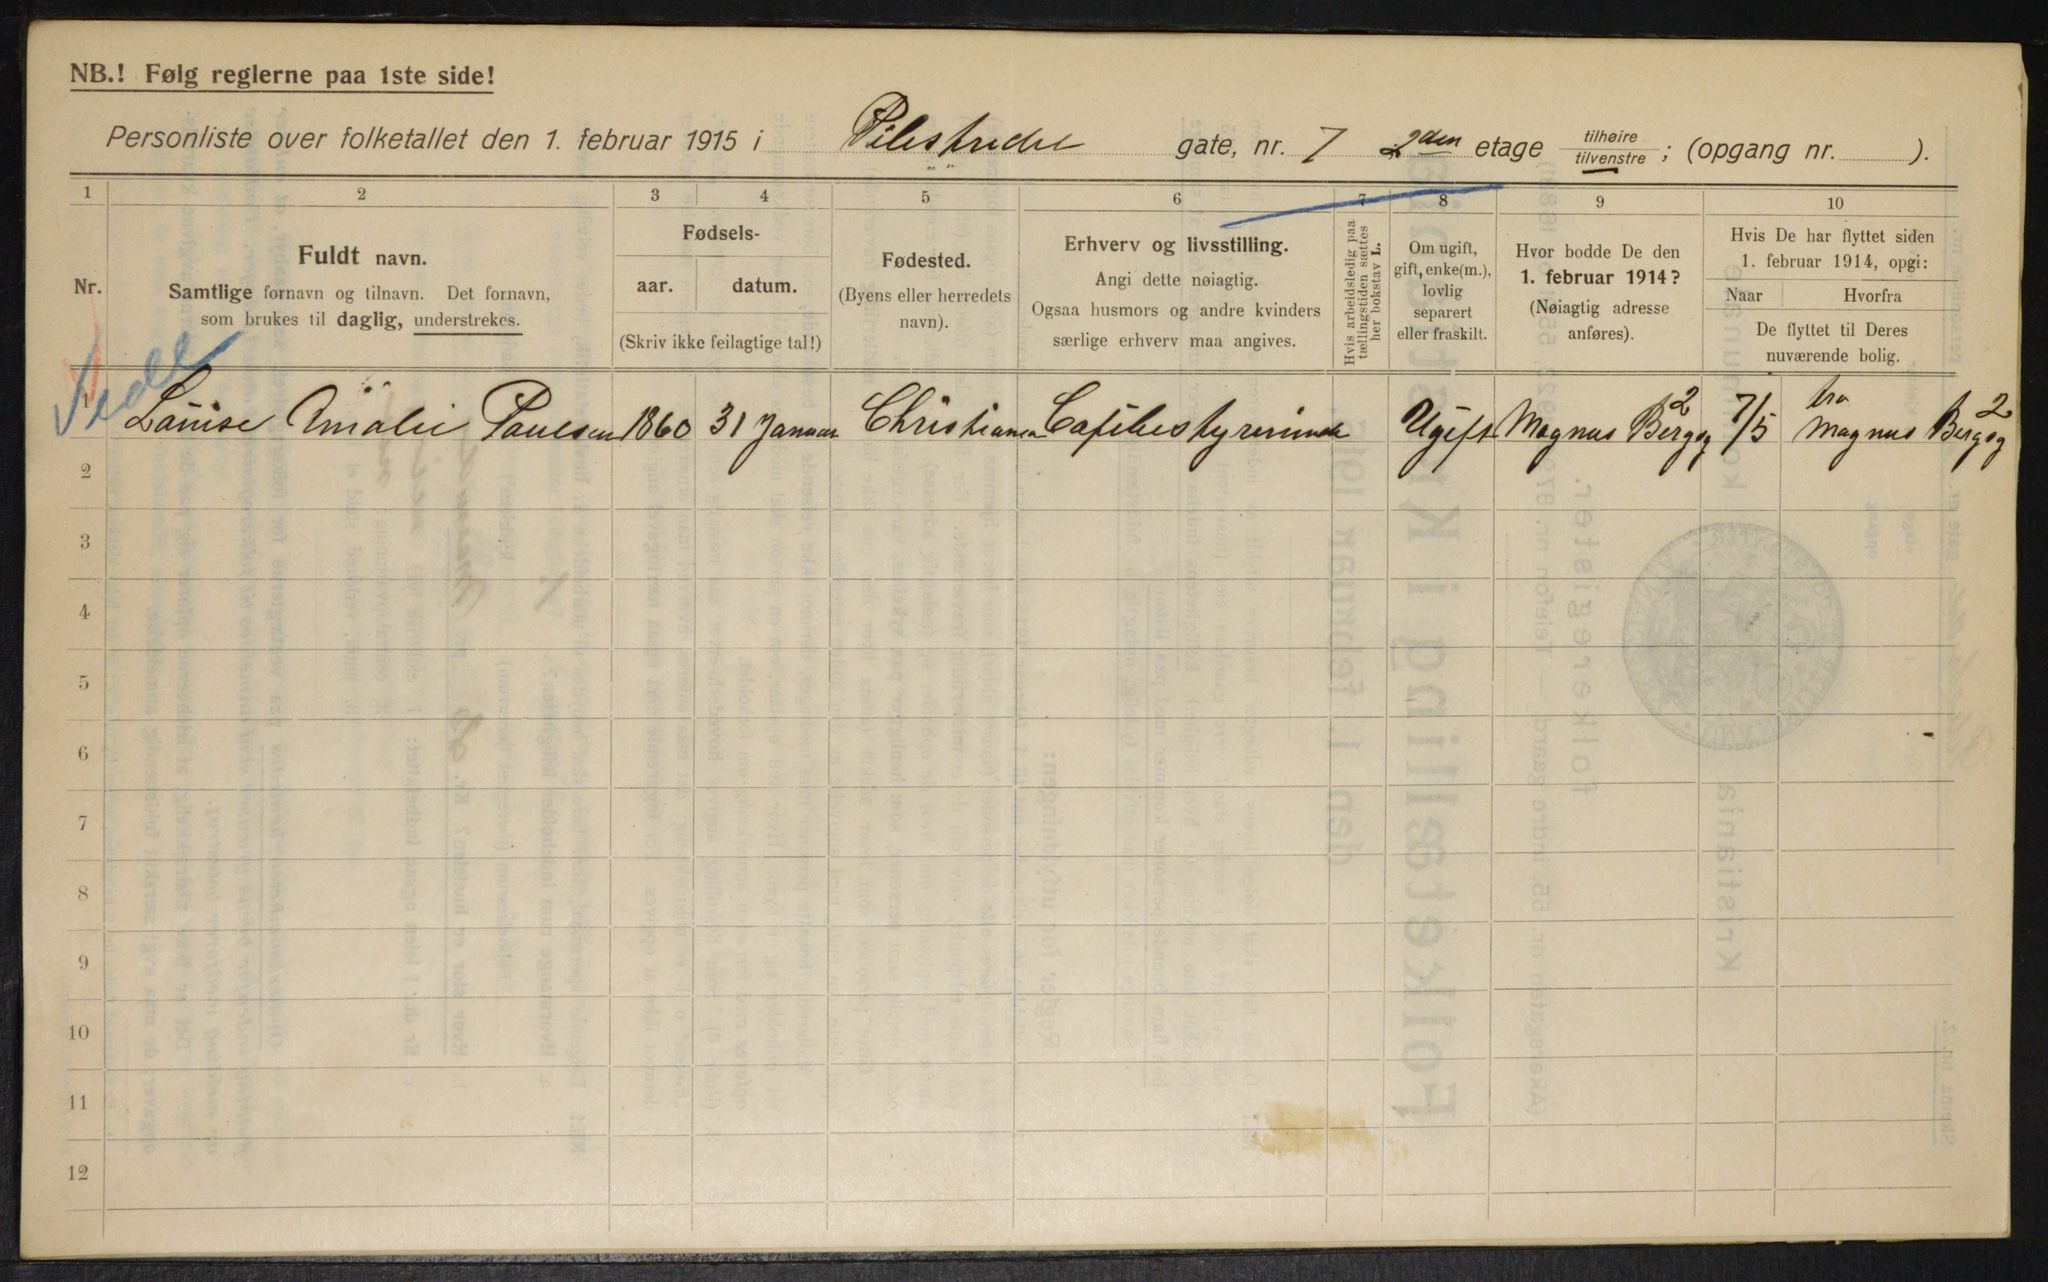 NB.! Følg reglerne paa 1ste side!
Personliste over folketallet den 1. februar 1915 i Pilestredet gate, nr. 7 2den etage tilhøire tilvenstre; (opgang nr. ).
1 2 3 4 5 6 7 8 9 10
Nr.
Fuldt navn.
Samtlige fornavn og tilnavn. Det fornavn,
som brukes til daglig, understrekes.
Fødsels-
aar. datum.
(Skriv ikke feilagtige tal!)
Fødested.
(Byens eller herredets
navn).
Erhverv og livsstilling.
Angi dette nøiagtig.
Ogsaa husmors og andre kvinders
særlige erhverv maa angives.
Hvis arbeidsledig paa
tællingstiden sættes
her bokstav L.
Om ugift,
gift, enke(m.),
lovlig
separert
eller fraskilt.
Hvor bodde De den
1. februar 1914?
(Nøiagtig adresse
anføres).
Hvis De har flyttet siden
1. februar 1914, opgi:
Naar Hvorfra
De flyttet til Deres
nuværende bolig.
1 Louise Amalie Paulsen 1860 31 Januar Christiania Cafébestyrerinde Ugift Magnus Bergsg 2 7/5 fra Magnus Bergsg 2
2
3
4
5
6
7
8
9
10
11
12